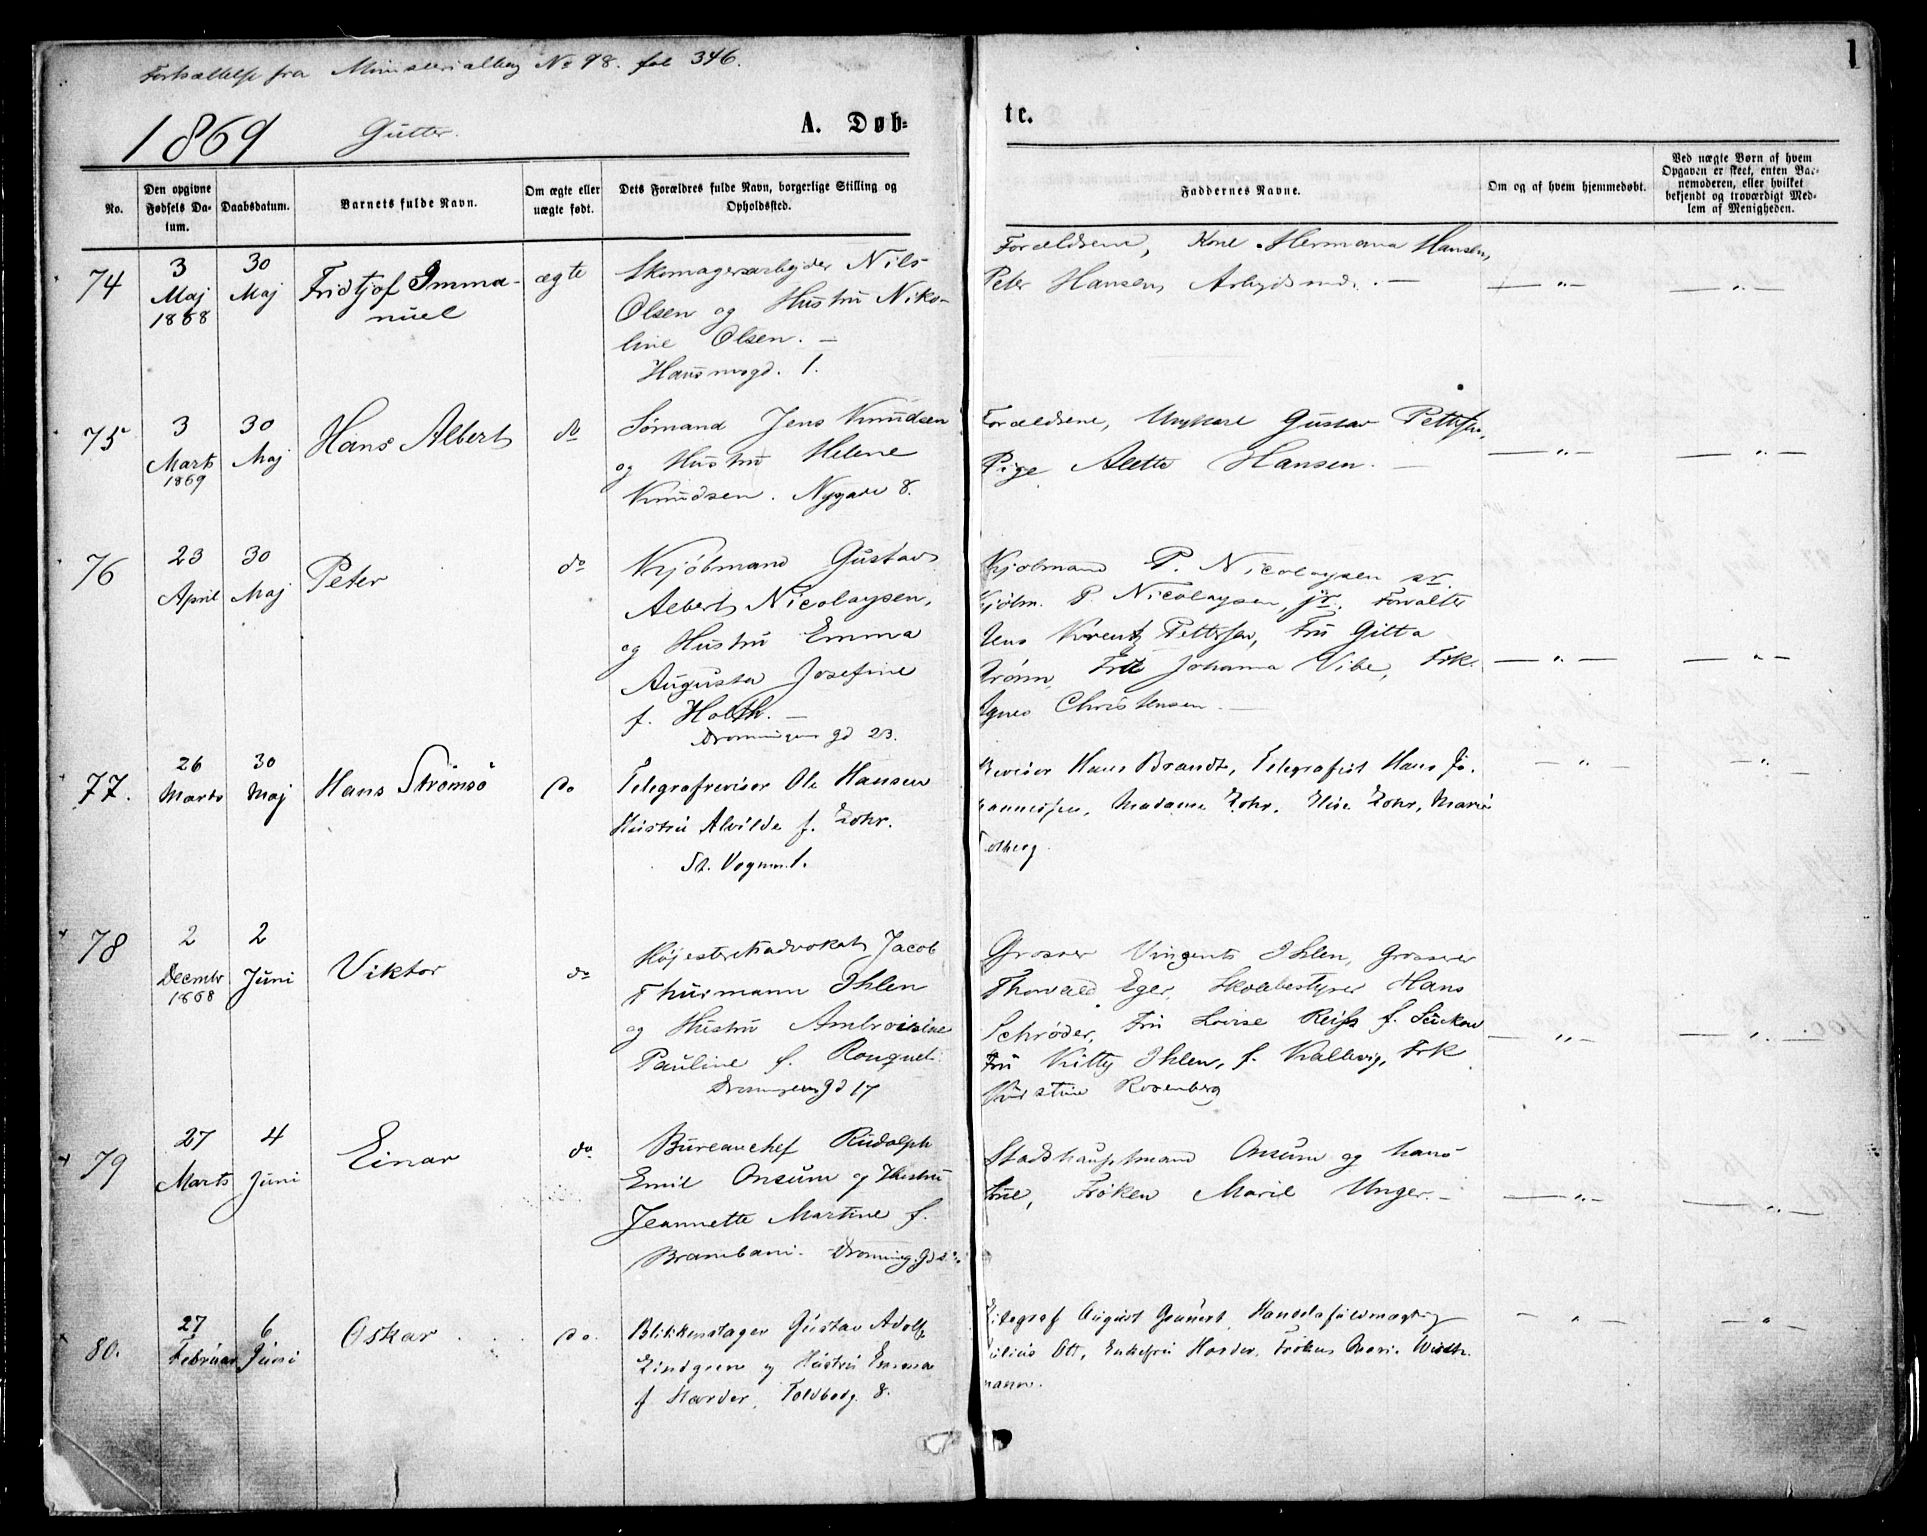 Fortsættelse fra Ministerialbog No 98. fol 346.
1
1869 Gutter.
A. Døb-
te.
No.
Den opgivne Fødsels Da-tum.
Daabsdatum.
Barnets fulde Navn.
Om ægte eller uægte født.
Dets Forældres fulde Navn, borgerlige Stilling og Opholdsted.
Faddernes Navne.
Om og af hvem hjemmedøbt.
Ved uægte Børn af hvem Opgaven er skeet, enten Bar-nemoderen, eller hvilket bekjendt og troværdigt Med-lem af Menigheden.
74
3 Maj 1868
30 Maj
Fridtjof Imma-
nuel
ægte
Skomagerarbejder Nils
Olsen og Hustru Niko-
line Olsen. —
Hausmsgd. 1.
Forældrene, Kone Hermana Hansen,
Peter Hansen, Arbejdsmd. —
— „ —
— „ —
75
3 Marts 1869
30 Maj
Hans Albert
do
Sømand Jens Knudsen
og Hustru Helene
Knudsen. Nygade 8.
Forældrene, Ungkarl Gustav Pettersen,
Pige Alette Hansen. —
— „ —
— „ —
76
23 April
30 Maj
Peter
do
Kjøbmand Gustav
Albert Nicolaysen,
og Hustru Emma
Augusta Josefine
f. Holth. —
Dronningens gd 23.
Kjøbmand P. Nicolaysen sr.
Kjøbm. P. Nicolaysen, jr., Forvalter
Jens Krentz Pettersen, Fru Gitta
Grønn, Frk Johanna Vibe, Frk.
Agnes Christensen. —
— „ —
— „ —
77.
26 Marts
30 Maj
Hans Strømsö
do
Telegrafrevisor Ole Hansen
Hustru Alvilde f. Lohr.
St. Vognm. 1.
Revisor Hans Brandt, Telegrafist Hans Jo-
hannessen, Madame Lohr, Elise Lohr, Marie
Solberg.
— „ —
— „ —
78
2 Decembr 1868
2 Juni
Viktor
do
Højesteretsadvokat Jacob
Thurmann Ihlen
og Hustru Ambroisine
Pauline f. Rouquet.
Dronningens gd 17
Grosser Vingents Ihlen, Grosserer
Thorvald Eger, Skolebestyrer Hans
Schrøder, Fru Lovise Reiss f. Suckow
Fru Kitty Ihlen, f. Kallevig, Frk
Kirstine Rosenberg
— „ —
— „ —
79
27 Marts
4 Juni
Einar
do
Bureauchef Rudolph
Emil Onsum og Hustru
Jeannette Martine f.
Brambani. Dronning. gd
Stadshauptmand Onsum og hans
Frue, Frøken Marie Unger. —
— „ —
— „ —
80.
27 Februar
6 Juni
Oskar
do.
Blikkenslager Gustav Adolf
Lindgren og Hustru Emma
f Harder, Toldbodg. 8.
Litograf August Grunert, Handelsfuldmægtig
Julius Ott, Enkefru Harder, Frøken Marie Weth-
mann.
— „ —
— „ —